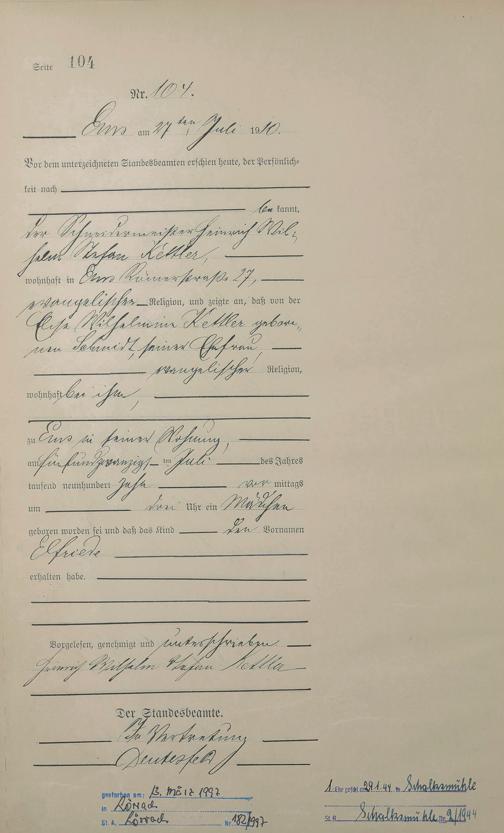 Seite 104
Nr. 104.
Ems am 27ten Juli 1910.
Vor dem unterzeichneten Standesbeamten erschien heute, der Persönlich-
keit nach
be kannt,
der Schneidermeister Heinrich Wil-
helm Stefan Kettler,
wohnhaft in Ems Römerstraße 27,
evangelischer Religion, und zeigte an, daß von der
Elise Wilhelmine Kettler gebore-
nen Schmidt, seiner Ehefrau,
evangelischer Religion,
wohnhaft bei ihm,
zu Ems in seiner Wohnung,
am fünfundzwanzigsten Juli des Jahres
tausend neunhundert zehn vor mittags
um drei Uhr ein Mädchen
geboren worden sei und daß das Kind den Vornamen
Elfriede
erhalten habe.
Vorgelesen, genehmigt und unterschrieben
Heinrich Wilhelm Stefan Kettler
Der Standesbeamte.
In Vertretung
gestorben am: 13. März 1997
in Lörrach
St. A. Lörrach Nr. 182/1997
1. Ehe geschl. 29.1.44 in Schalksmühle
St. A. Schalksmühle Nr. 2/1944